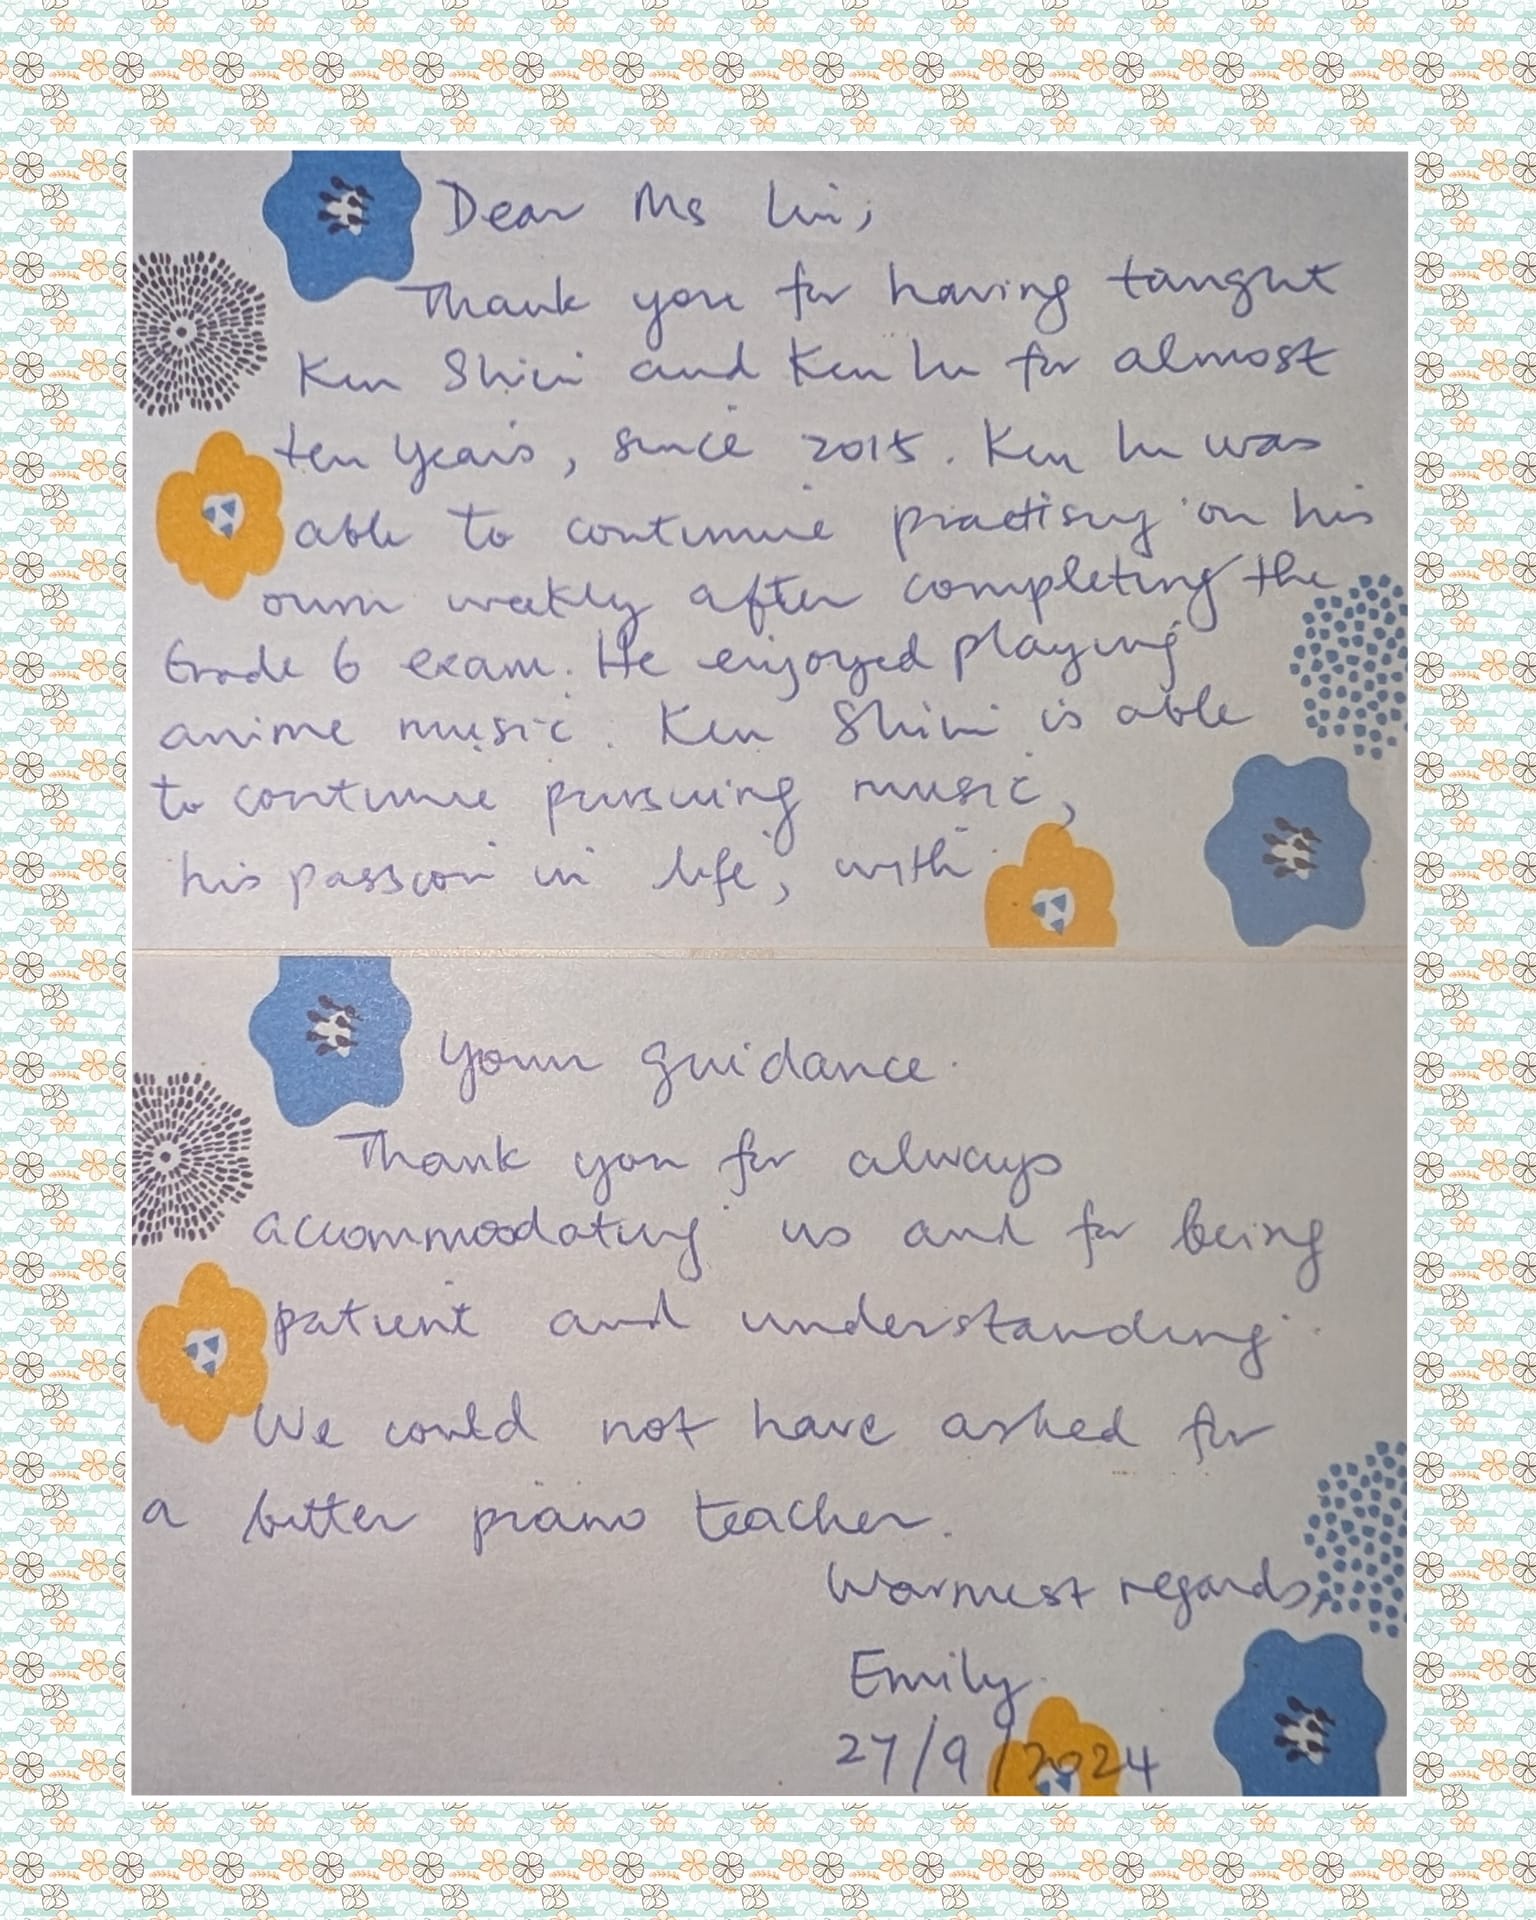 Dear Ms Lin,
Thank you for having taught
Ken Shin and Ken Lu for almost
ten years, since 2015. Ken Lu was
able to continue practising on his
own weekly after completing the
Grade 6 exam. He enjoyed playing
anime music. Ken Shin is able
to continue pursuing music,
his passion in life, with
your guidance.
Thank you for always
accommodating us and for being
patient and understanding.
We could not have asked for
a better piano teacher.
Warmest regards,
Emily
27/9/2024